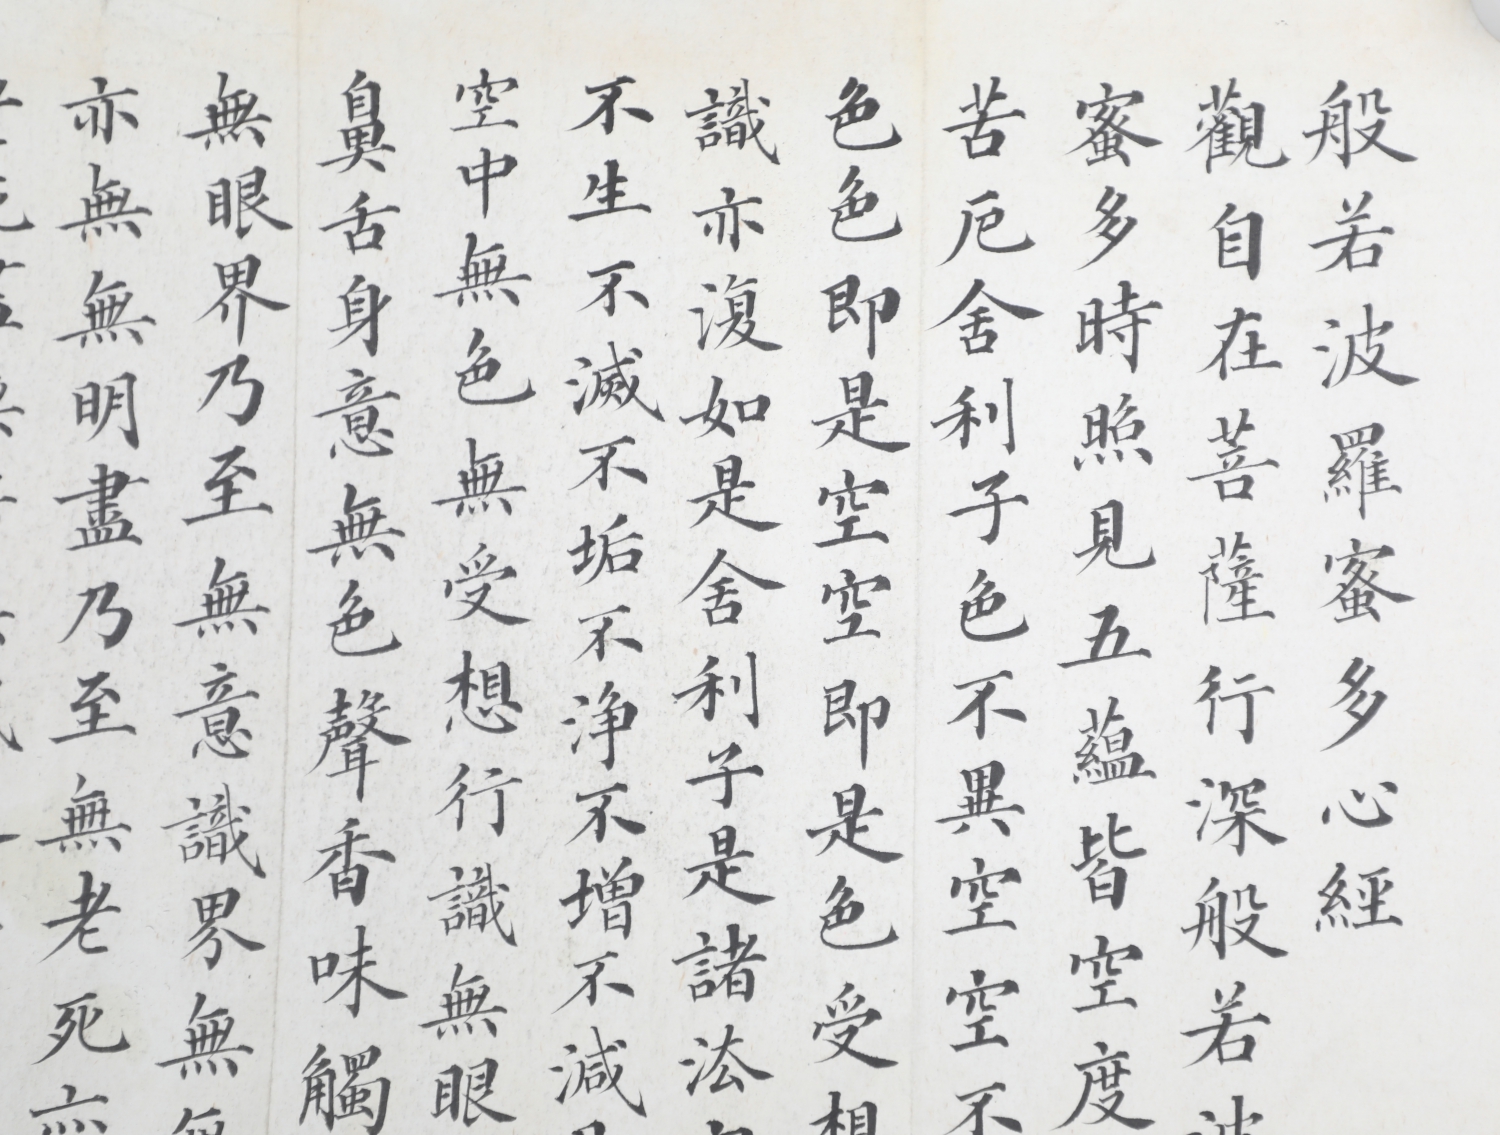 般若波羅蜜多心經
觀自在菩薩行深般若波
蜜多時照見五蘊皆空度
苦厄舍利子色不異空空不
色色即是空空即是色受想
識亦復如是舍利子是諸法
不生不滅不垢不净不增不減
空中無色無受想行識無眼
鼻舌身意無色聲香味觸
無眼界乃至無意識界無無
亦無無明盡乃至無老死亦